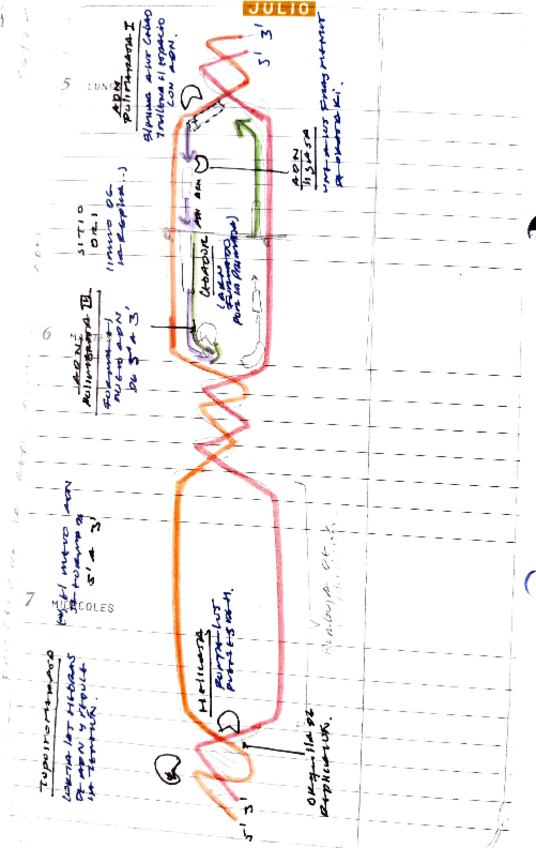 JULIO
5 LUNES
6
7 MIÉRCOLES
5' 3'
ADN
POLIMERASA I
ELIMINA A LOS CEBADO
Y RELLENA EL ESPACIO
CON ADN.
ADN
LIGASA
UNE A LOS FRAGMENTOS
DE OKASAKI.
SITIO
ORI
(INICIO DE
LA REPLICA...)
CEBADOR
(ARN
FORMADO
POR LA PRIMASA)
ADN
POLIMERASA III
FORMA EL
NUEVO ADN
DE 5' A 3'
EL NUEVO ADN
SE FORMA DE
5' A 3'
HELICASA
ROMPE LOS
PUENTES DE H.
BURBUJA DE
TOPOISOMERASA
CORTA LAS HEBRAS
DE ADN Y REDUCE
LA TENSIÓN.
ORQUILLA DE
REPLICACIÓN.
5' 3'